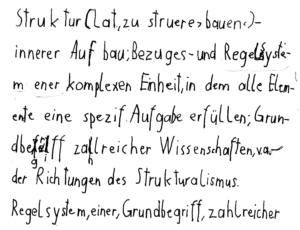 Struktur (lat, zu struere >bauen<)-
innerer Aufbau; Bezuges- und Regelsyste-
m ener komplexen Einheit, in dem alle Elem-
ente eine spezif. Aufgabe erfüllen; Grun-
dbegriff zahlreicher Wissenschaften, v.a.
der Richtungen des Strukturalismus.
Regelsystem, einer, Grundbegriff, zahlreicher